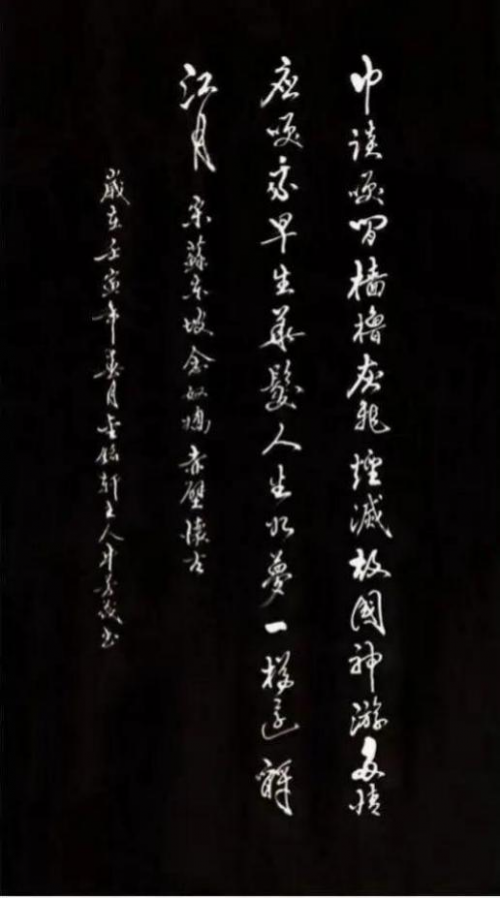 巾談咲間樯櫓灰飛煙滅故國神游多情
应咲我早生華髮人生如夢一樽還酹
江月 宋蘇東坡念奴嬌赤壁懷古
歲在壬寅年春月軒主人书